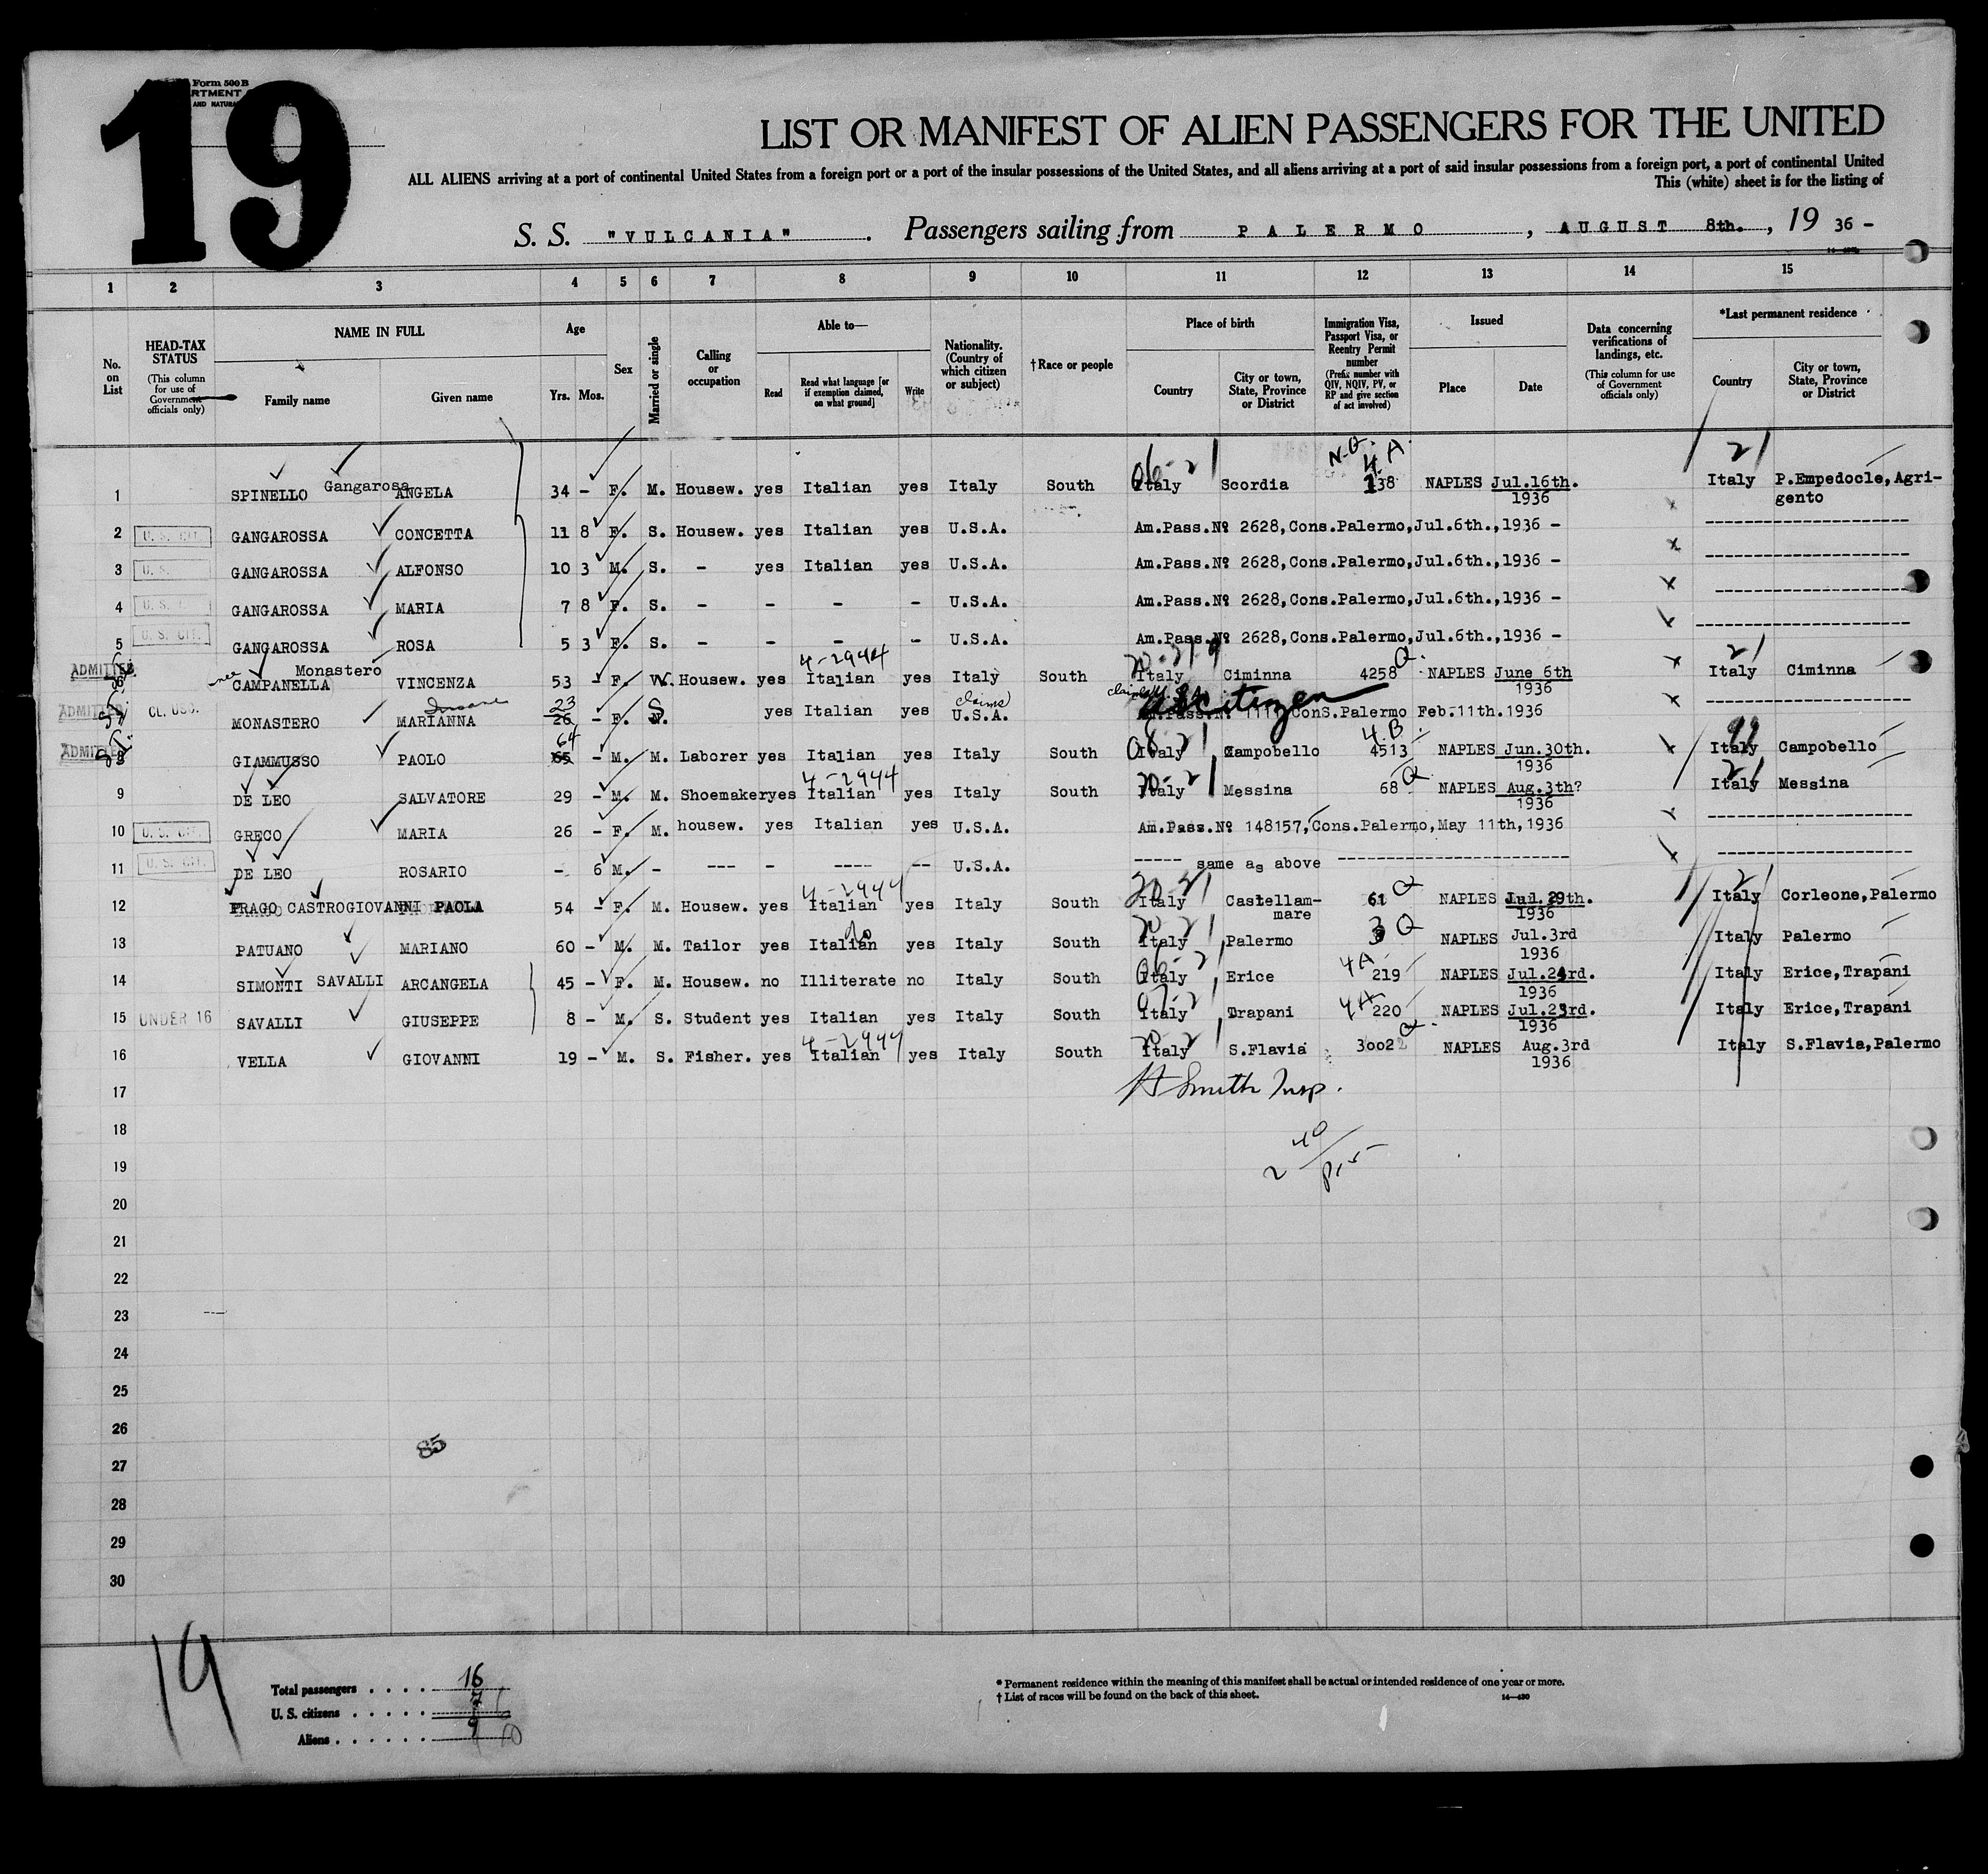 19
Form 500 B
LIST OR MANIFEST OF ALIEN PASSENGERS FOR THE UNITED
ALL ALIENS arriving at a port of continental United States from a foreign port or a port of the insular possessions of the United States, and all aliens arriving at a port of said insular possessions from a foreign port, a port of continental United
This (white) sheet is for the listing of
S. S. "VULCANIA". Passengers sailing from PALERMO, AUGUST 8th., 19 36 -
1 2 3 4 5 6 7 8 9 10 11 12 13 14 15
No. on List
HEAD-TAX STATUS
(This column for use of Government officials only)
NAME IN FULL
Family name Given name
Age
Yrs. Mos.
Sex
Married or single
Calling or occupation
Able to—
Read
Read what language [or if exemption claimed, on what ground]
Write
Nationality. (Country of which citizen or subject)
†Race or people
Place of birth
Country
City or town, State, Province or District
Immigration Visa, Passport Visa, or Reentry Permit number
(Prefix number with QIV, NQIV, PV, or RP and give section of act involved)
Issued
Place Date
Data concerning verifications of landings, etc.
(This column for use of Government officials only)
*Last permanent residence
Country
City or town, State, Province or District
N.Q. 4 A.
1 SPINELLO Gangarosa ANGELA 34 - F. M. Housew. yes Italian yes Italy South Italy Scordia 138 NAPLES Jul.16th. 1936 Italy P.Empedocle, Agri-
gento
2 U. S. CIT. GANGAROSSA CONCETTA 11 8 F. S. Housew. yes Italian yes U.S.A. Am.Pass.Nº 2628, Cons.Palermo, Jul.6th., 1936 -
3 U. S. GANGAROSSA ALFONSO 10 3 M. S. - yes Italian yes U.S.A. Am.Pass.Nº 2628, Cons.Palermo, Jul.6th., 1936 -
4 U. S. CIT. GANGAROSSA MARIA 7 8 F. S. - - - - U.S.A. Am.Pass.Nº 2628, Cons.Palermo, Jul.6th., 1936 -
5 U. S. CIT. GANGAROSSA ROSA 5 3 F. S. - - - - U.S.A. Am.Pass.Nº 2628, Cons.Palermo, Jul.6th., 1936 -
ADMITTED nee Monastero 4-2944
CAMPANELLA VINCENZA 53 - F. W. Housew. yes Italian yes Italy South Italy Ciminna 4258 Q NAPLES June 6th 1936 Italy Ciminna
ADMITTED CL. USC. MONASTERO MARIANNA Insane 23 26 - F. S yes Italian yes claims U.S.A. claims U.S. citizen Am.Pass.Nº 111 ConS.Palermo Feb.11th.1936
ADMITTED GIAMMUSSO PAOLO 64 65 - M. M. Laborer yes Italian yes Italy South Italy Campobello 4.B. 4513 NAPLES Jun.30th. 1936 99 Italy Campobello
4-2944
9 DE LEO SALVATORE 29 - M. M. Shoemaker yes Italian yes Italy South Italy Messina 68 Q NAPLES Aug.3th? 1936 Italy Messina
10 U. S. CIT. GRECO MARIA 26 - F. M. housew. yes Italian yes U.S.A. Am.Pass.Nº 148157, Cons.Palermo, May 11th, 1936
11 U. S. CIT. DE LEO ROSARIO - 6 M. - --- - ---- -- U.S.A. ----- same as above
4-2944
12 PRAGO CASTROGIOVANNI PAOLA 54 - F. M. Housew. yes Italian yes Italy South Italy Castellam-
mare 61 Q NAPLES Jul. 29th. 1936 Italy Corleone, Palermo
13 PATUANO MARIANO 60 - M. M. Tailor yes Italian do yes Italy South Italy Palermo 3 Q NAPLES Jul.3rd 1936 Italy Palermo
14 SIMONTI SAVALLI ARCANGELA 45 - F. M. Housew. no Illiterate no Italy South Italy Erice 4A 219 NAPLES Jul.23rd. 1936 Italy Erice, Trapani
15 UNDER 16 SAVALLI GIUSEPPE 8 - M. S. Student yes Italian yes Italy South Italy Trapani 4A 220 NAPLES Jul.23rd. 1936 Italy Erice, Trapani
4-2944
16 VELLA GIOVANNI 19 - M. S. Fisher. yes Italian yes Italy South Italy S.Flavia 3002 Q NAPLES Aug.3rd 1936 Italy S.Flavia, Palermo
17 H Smith Insp.
18
19
20
21
22
23
24
25
26
85
27
28
29
30
19
Total passengers . . . . 16
U. S. citizens . . . . . 7
Aliens . . . . . . 9 10
* Permanent residence within the meaning of this manifest shall be actual or intended residence of one year or more.
† List of races will be found on the back of this sheet. 14—430